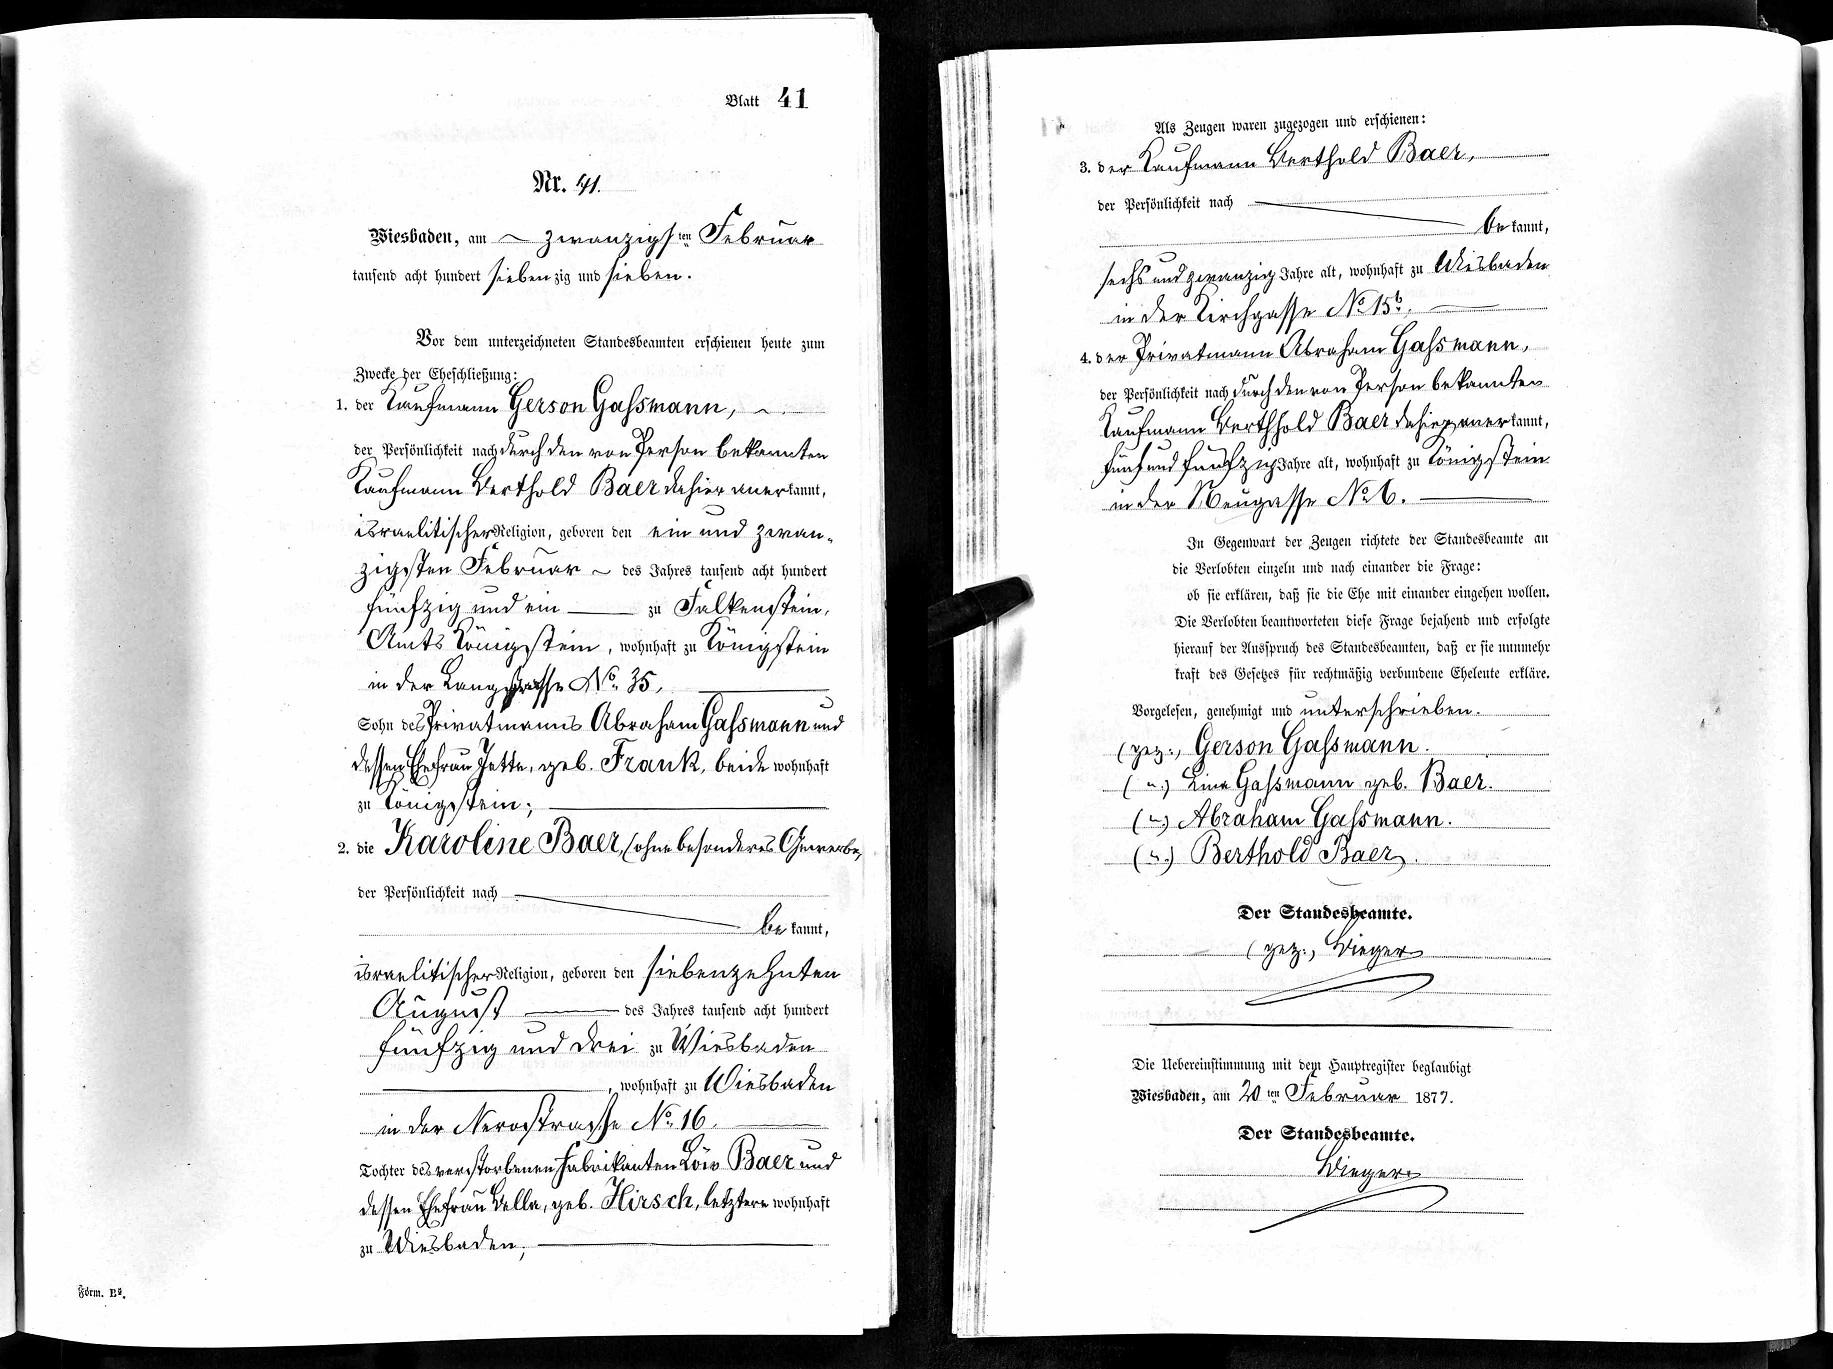 Blatt 41
Nr. 41.
Wiesbaden, am zwanzigsten Februar
tausend acht hundert siebenzig und sieben.
Vor dem unterzeichneten Standesbeamten erschienen heute zum
Zwecke der Eheschließung:
1. der Kaufmann Gerson Gaßmann,
der Persönlichkeit nach durch den von Person bekannten
Kaufmann Berthold Baer dahier anerkannt,
israelitischer Religion, geboren den ein und zwan-
zigsten Februar des Jahres tausend acht hundert
fünfzig und ein zu Falkenstein,
Amts Königstein, wohnhaft zu Königstein
in der No. 35,
Sohn des Privatmanns Abraham Gaßmann und
dessen Ehefrau Jette, geb. Frank, beide wohnhaft
zu Königstein;
2. die Karoline Baer, (ohne besonderes Gewerbe,
der Persönlichkeit nach
bekannt,
israelitischer Religion, geboren den siebenzehnten
August des Jahres tausend acht hundert
fünfzig und drei zu Wiesbaden
, wohnhaft zu Wiesbaden
in der Nerostraße No. 16.
Tochter des verstorbenen Fabrikanten Löw Baer und
dessen Ehefrau Bella, geb. Hirsch, letztere wohnhaft
zu Wiesbaden;
Form. B.
Als Zeugen waren zugezogen und erschienen:
3. der Kaufmann Berthold Baer,
der Persönlichkeit nach
bekannt,
sechs und zwanzig Jahre alt, wohnhaft zu Wiesbaden
in der Kirchgasse No 15b,
4. der Privatmann Abraham Gaßmann,
der Persönlichkeit nach durch den von Person bekannten
Kaufmann Berthhold Baer dahier anerkannt,
fünf und fünfzig Jahre alt, wohnhaft zu Königstein
in der Neugasse No 6.
In Gegenwart der Zeugen richtete der Standesbeamte an
die Verlobten einzeln und nach einander die Frage:
ob sie erklären, daß sie die Ehe mit einander eingehen wollen.
Die Verlobten beantworteten diese Frage bejahend und erfolgte
hierauf der Ausspruch des Standesbeamten, daß er sie nunmehr
kraft des Gesetzes für rechtmäßig verbundene Eheleute erkläre.
Vorgelesen, genehmigt und unterschrieben.
(gez:, Gerson Gaßmann.
( ".) Line Gaßmann geb. Baer.
( ".) Abraham Gaßmann.
( ".) Berthold Baer.
Der Standesbeamte.
(gez:,
Die Uebereinstimmung mit dem Hauptregister beglaubigt
Wiesbaden, am 20ten Februar 1877.
Der Standesbeamte.